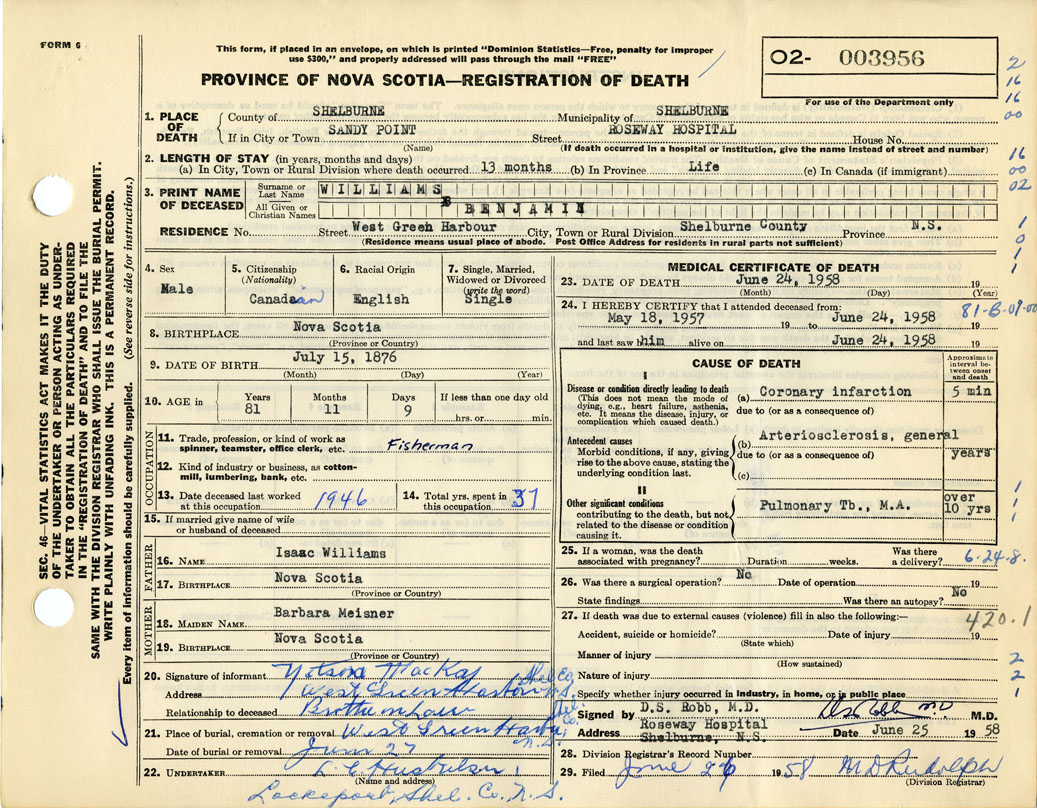 FORM 6
This form, if placed in an envelope, on which is printed "Dominion Statistics—Free, penalty for improper
use $300," and properly addressed will pass through the mail "FREE"
PROVINCE OF NOVA SCOTIA—REGISTRATION OF DEATH
O2- 003956
For use of the Department only
2
16
16
00
16
00
02
1
0
1
1
1. PLACE OF DEATH
County of SHELBURNE Municipality of SHELBURNE
If in City or Town SANDY POINT Street ROSEWAY HOSPITAL House No.
(Name) (If death occurred in a hospital or institution, give the name instead of street and number)
2. LENGTH OF STAY (in years, months and days)
(a) In City, Town or Rural Division where death occurred 13 months (b) In Province Life (c) In Canada (if immigrant)
3. PRINT NAME OF DECEASED
Surname or Last Name WILLIAMS
All Given or Christian Names BENJAMIN
RESIDENCE No. Street West Green Harbour City, Town or Rural Division Shelburne County Province N.S.
(Residence means usual place of abode. Post Office Address for residents in rural parts not sufficient)
4. Sex Male
5. Citizenship (Nationality) Canadian
6. Racial Origin English
7. Single, Married, Widowed or Divorced (write the word) Single
8. BIRTHPLACE Nova Scotia
(Province or Country)
9. DATE OF BIRTH July 15, 1876
(Month) (Day) (Year)
10. AGE in Years 81 Months 11 Days 9 If less than one day old
hrs. or min.
OCCUPATION
11. Trade, profession, or kind of work as spinner, teamster, office clerk, etc. Fisherman
12. Kind of industry or business, as cotton-mill, lumbering, bank, etc.
13. Date deceased last worked at this occupation 1946
14. Total yrs. spent in this occupation 37
15. If married give name of wife or husband of deceased
FATHER
16. NAME Isaac Williams
17. BIRTHPLACE Nova Scotia
(Province or Country)
MOTHER
18. MAIDEN NAME Barbara Meisner
19. BIRTHPLACE Nova Scotia
(Province or Country)
20. Signature of informant Nelson MacKay
Address West Green Harbour Shel Co. N.S.
Relationship to deceased Brother in Law
21. Place of burial, cremation or removal West Green Harbor Shel. Co. N.S.
Date of burial or removal June 27
22. UNDERTAKER
(Name and address)
Lockeport, Shel. Co. N.S.
MEDICAL CERTIFICATE OF DEATH
23. DATE OF DEATH June 24, 1958 19
(Month) (Day) (Year)
24. I HEREBY CERTIFY that I attended deceased from:
May 18, 1957 19 to June 24, 1958
and last saw him alive on June 24, 1958 19
81-B-09-00
CAUSE OF DEATH
Approximate interval between onset and death
I
Disease or condition directly leading to death
(This does not mean the mode of dying, e.g., heart failure, asthenia, etc. It means the disease, injury, or complication which caused death.)
(a) Coronary infarction 5 min
due to (or as a consequence of)
Antecedent causes
Morbid conditions, if any, giving rise to the above cause, stating the underlying condition last.
(b) Arteriosclerosis, general years
due to (or as a consequence of)
(c)
II
Other significant conditions
contributing to the death, but not related to the disease or condition causing it.
Pulmonary Tb., M.A. over 10 yrs
1
1
1
25. If a woman, was the death associated with pregnancy? Duration weeks. Was there a delivery?
6-24-8.
26. Was there a surgical operation? No Date of operation 19
State findings Was there an autopsy? No
27. If death was due to external causes (violence) fill in also the following:—
420.1
Accident, suicide or homicide? Date of injury 19
(State which)
Manner of injury
(How sustained)
Nature of injury
Specify whether injury occurred in industry, in home, or in public place
2
2
1
Signed by D.S. Robb, M.D. DS Robb MD M.D.
Address Roseway Hospital Shelburne, N.S. Date June 25 1958
28. Division Registrar's Record Number
29. Filed June 26 1958 MD Rudolph
(Division Registrar)
SEC. 46—VITAL STATISTICS ACT MAKES IT THE DUTY
OF THE UNDERTAKER OR PERSON ACTING AS UNDER-
TAKER TO OBTAIN ALL THE PARTICULARS REQUIRED
IN THE "REGISTRATION OF DEATH" AND TO FILE THE
SAME WITH THE DIVISION REGISTRAR WHO SHALL ISSUE THE BURIAL PERMIT.
WRITE PLAINLY WITH UNFADING INK. THIS IS A PERMANENT RECORD.
Every item of information should be carefully supplied. (See reverse side for instructions.)